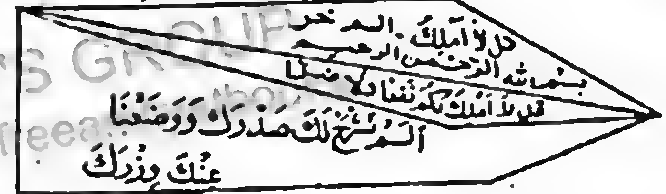 قل لا املك الم نحر
بسم الله الرحمن الرحيم
قل لا املك لكم نفعا ولا ضرا
اَلَمْ نَشْرَحْ لَكَ صَدْرَكَ وَوَضَعْنَا
عَنْكَ وِزْرَكَ
TS GROUP
freea